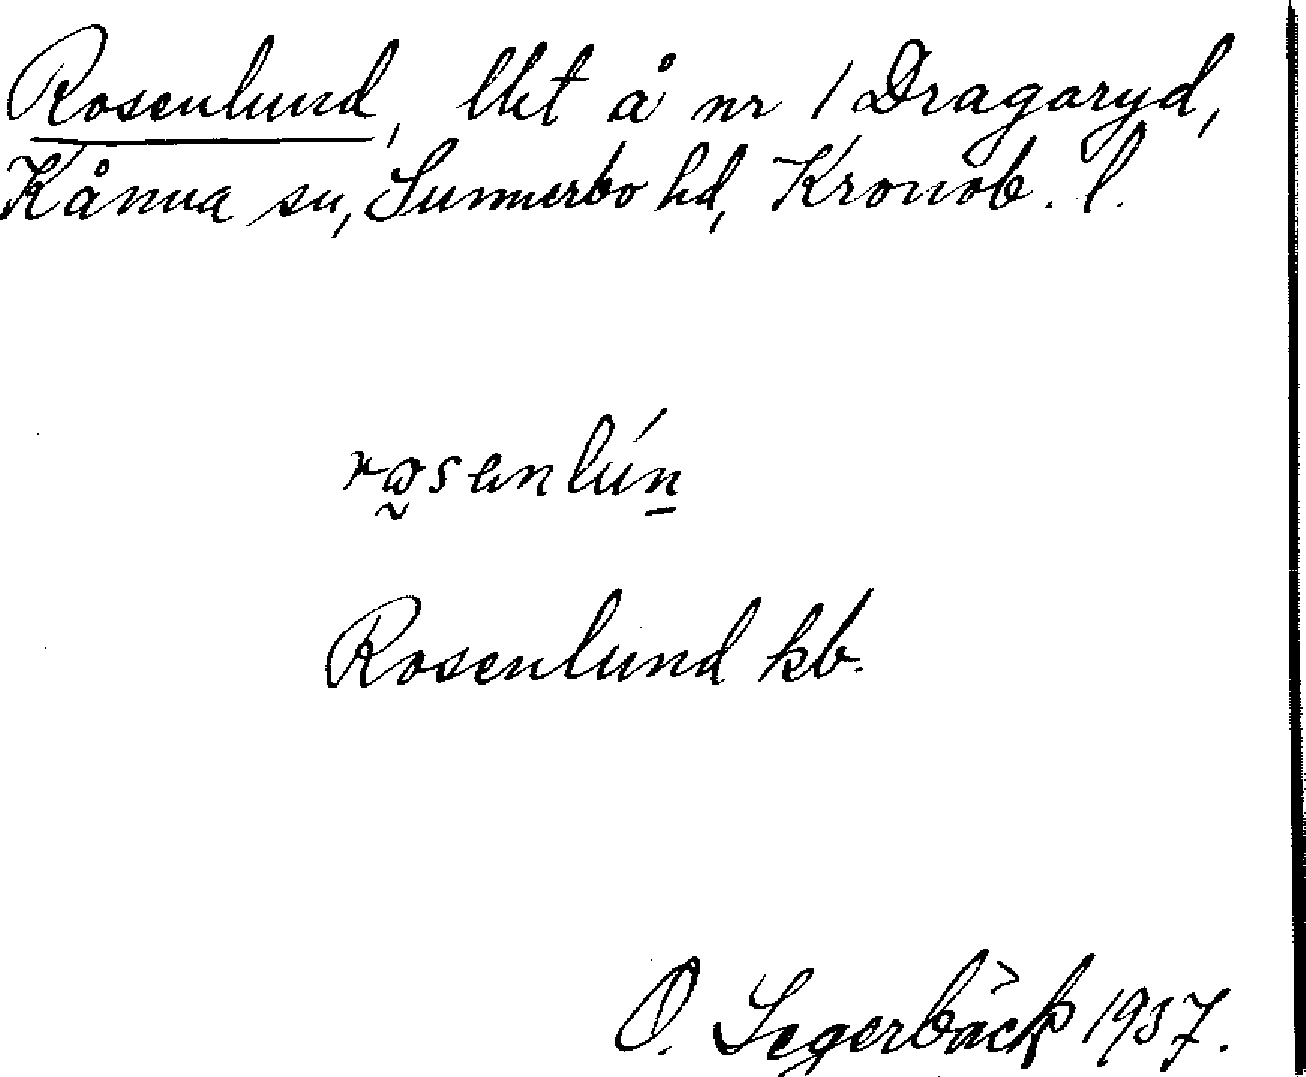 Rosenlund, lht å nr 1 Dragaryd,
Kånna sn, Sunnerbo hd, Kronob. l.
rosenlún
Rosenlund kb.
O. Segerbäck 1937.